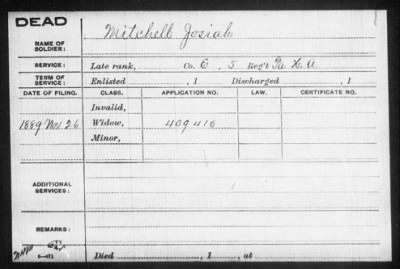 DEAD
NAME OF SOLDIER: Mitchell Josiah
SERVICE: Late rank, Co. C , 5 Reg't Pa. H. A
TERM OF SERVICE: Enlisted , 1 Discharged , 1
DATE OF FILING. CLASS. APPLICATION NO. LAW. CERTIFICATE NO.
Invalid,
1889 Nov. 26 Widow, 409410
Minor,
ADDITIONAL SERVICES:
REMARKS:
Died , 1 , at